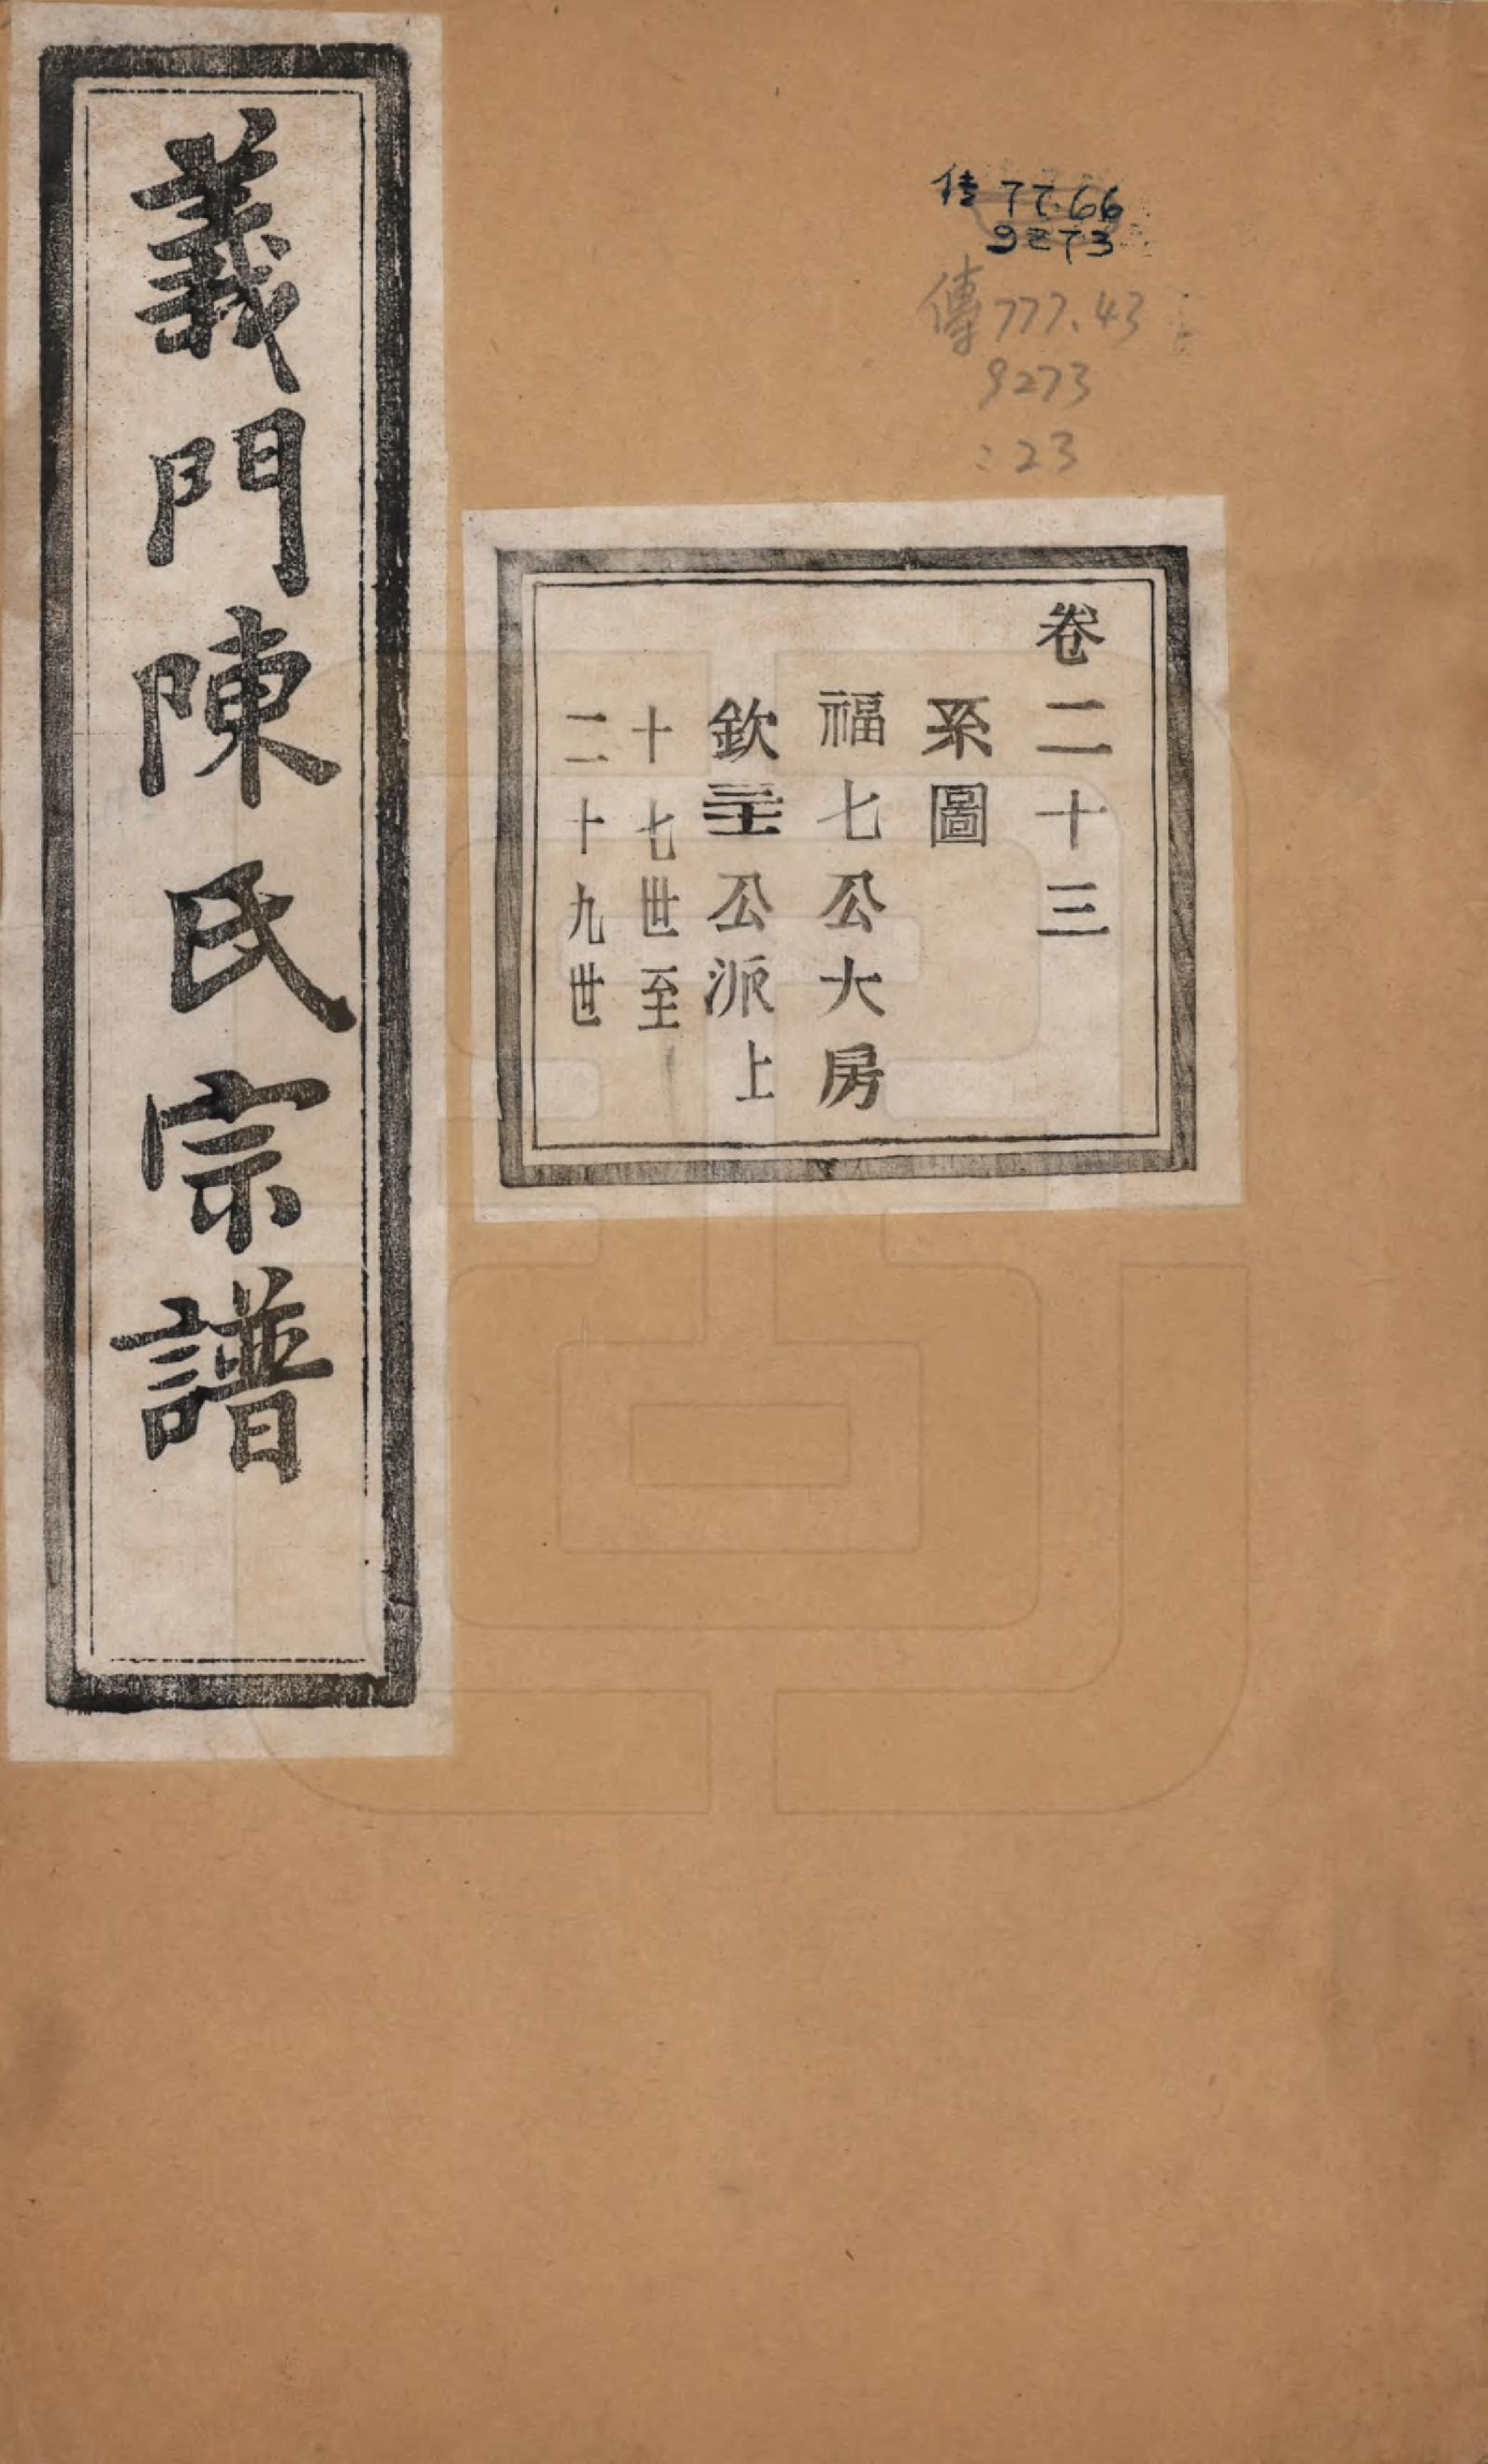 传 77.66
9273
傳777.43
9273
:23
卷二十三
系圖
福七公大房
欽公派上
十七世至
二十九世
義門陳氏宗譜